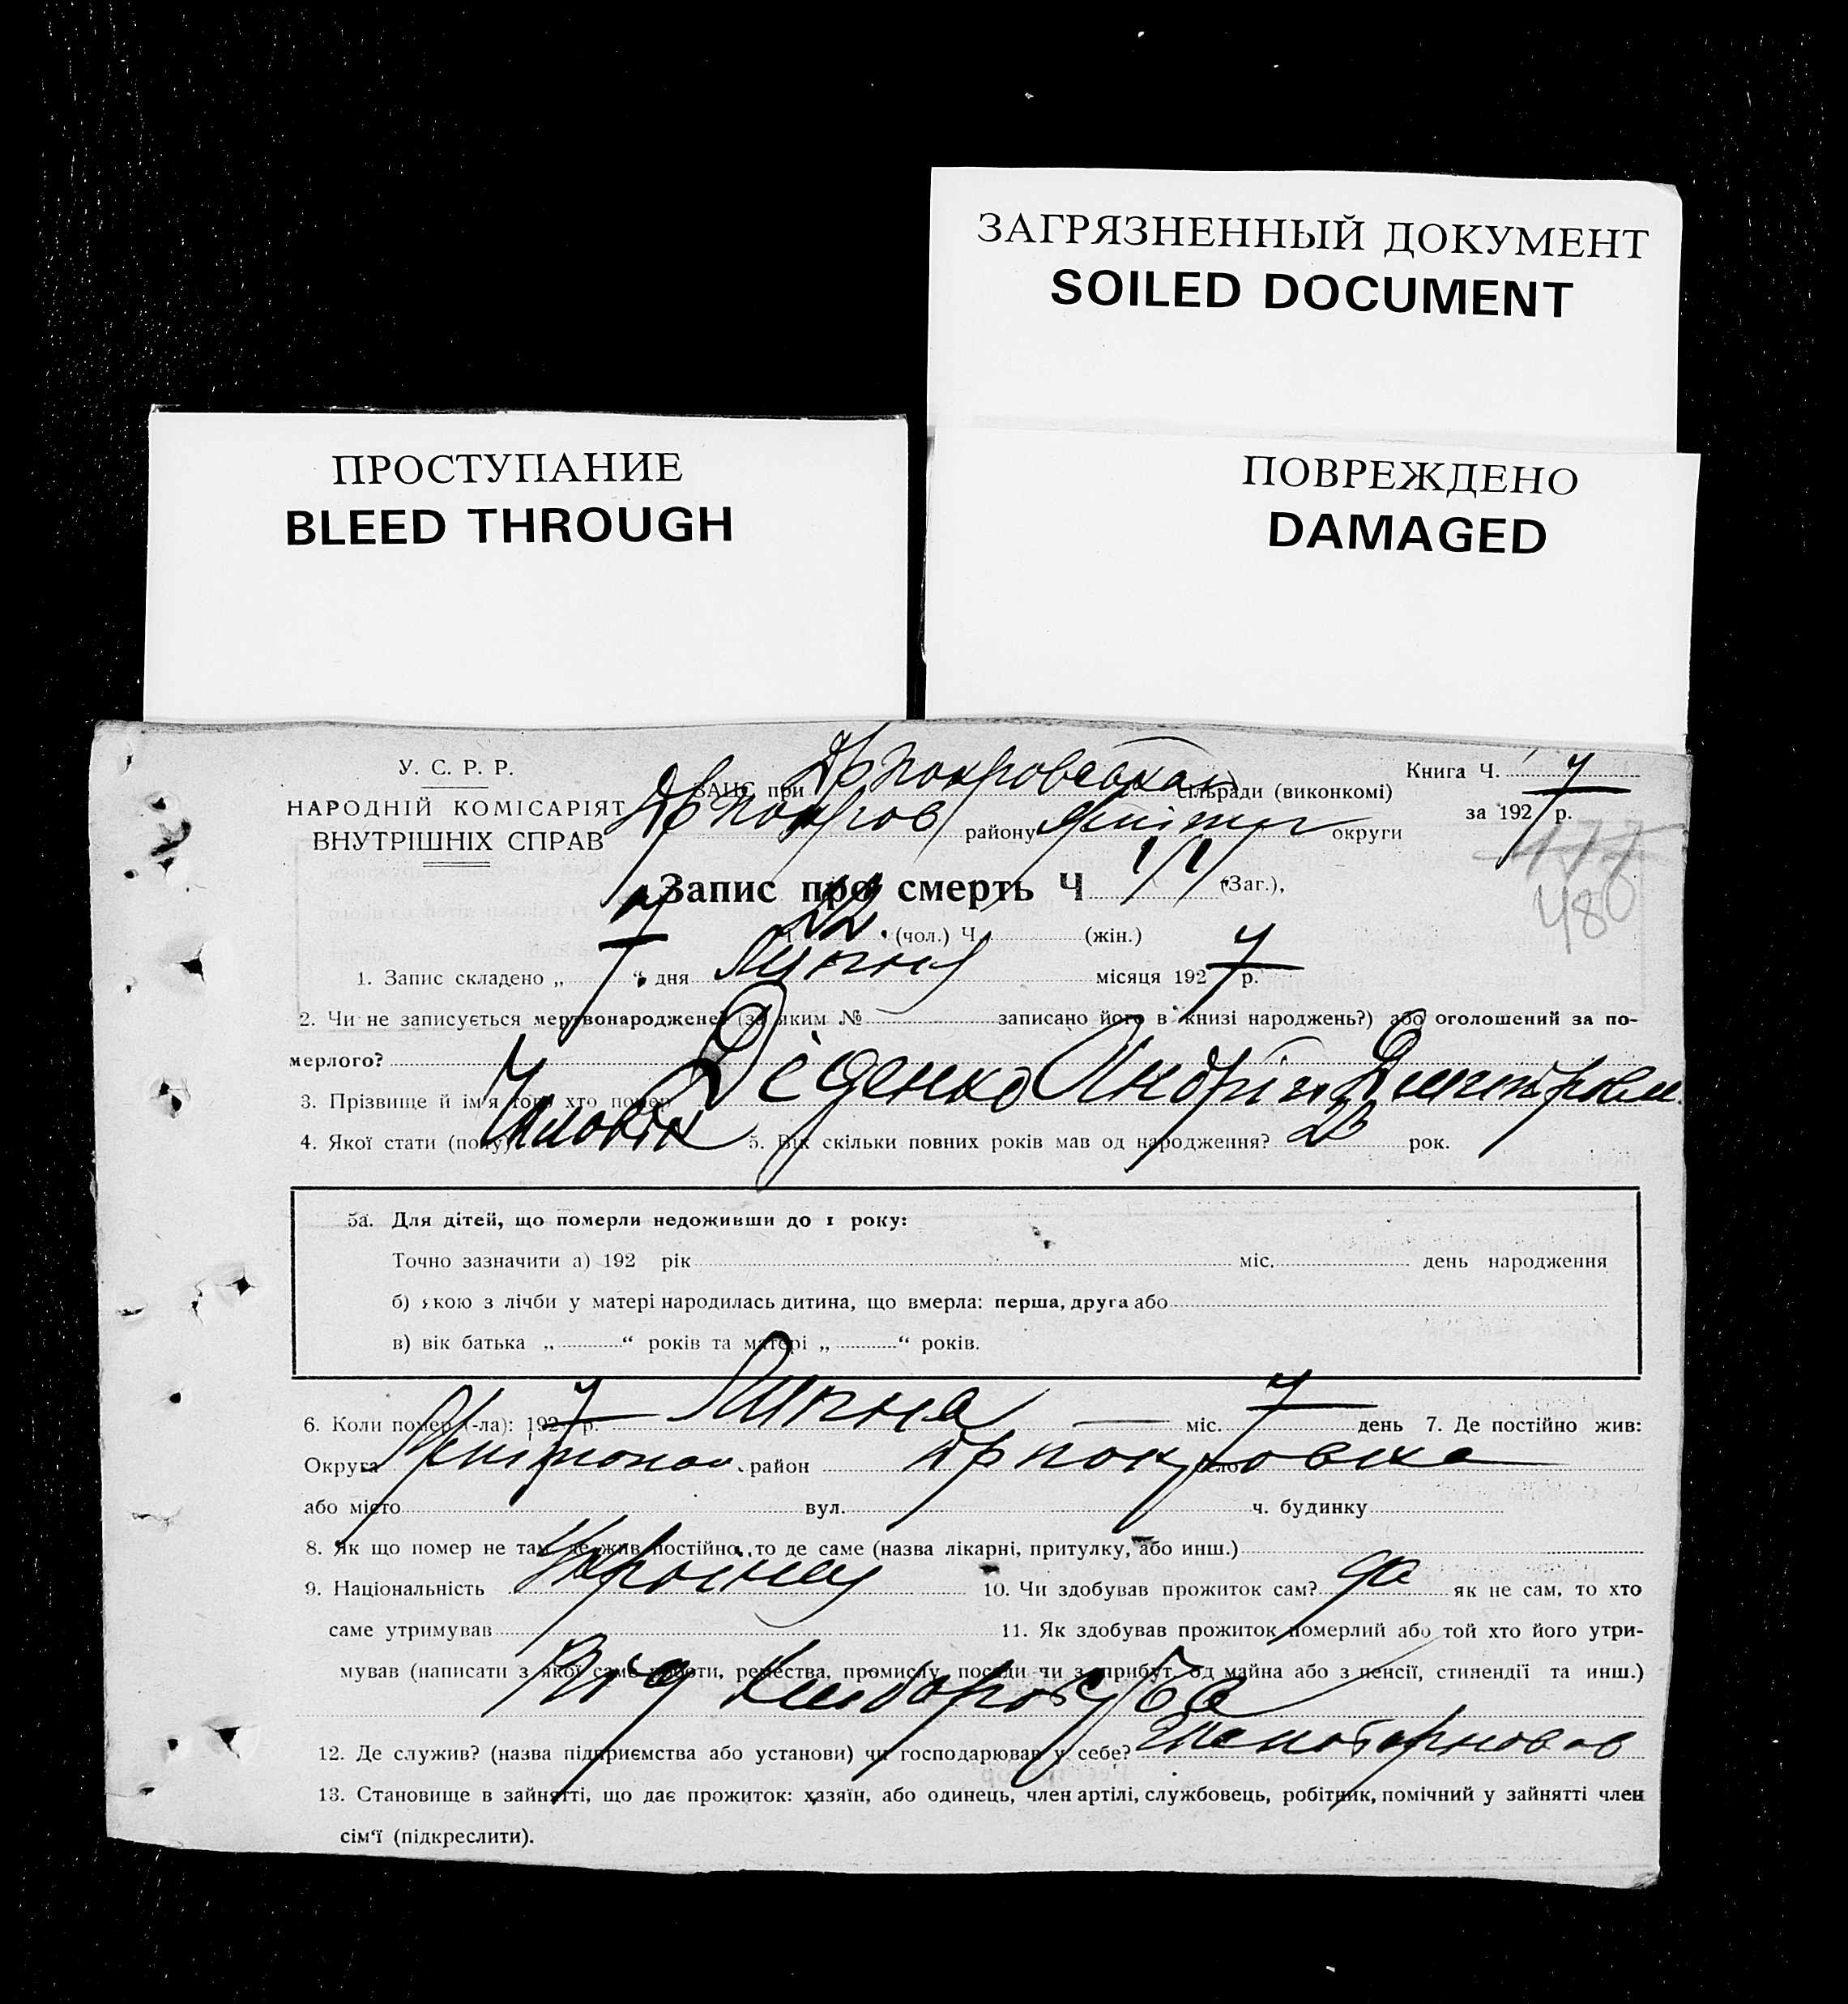 ЗАГРЯЗНЕННЫЙ ДОКУМЕНТ
SOILED DOCUMENT
ПРОСТУПАНИЕ
BLEED THROUGH
ПОВРЕЖДЕНО
DAMAGED
У. С. Р. Р.
НАРОДНІЙ КОМІСАРІЯТ
ВНУТРІШНІХ СПРАВ
ЗАГС при сільради (виконкомі)
району округи
Книга Ч.
за 1927 р.
177
480
Запис про смерть Ч (Заг.),
Ч 22. (чол.) Ч (жін.)
1. Запис складено „ 7 “ дня Липня місяця 1927 р.
2. Чи не записується мертвонароджене? (за яким № записано його в книзі народжень?) або оголошений за по-
мерлого?
3. Прізвище й ім'я того хто помер Діденко Андрій Дмитрович
4. Якої стати (полу) Чиловік 5. Вік скільки повних років мав од народження? 23 рок.
5а. Для дітей, що померли недоживши до 1 року:
Точно зазначити а) 192 рік міс. день народження
б) якою з лічби у матері народилась дитина, що вмерла: перша, друга або
в) вік батька „ “ років та матері „ “ років.
6. Коли помер (-ла): 1927 р. Липня міс. 7 день 7. Де постійно жив:
Округа район село
або місто вул. ч. будинку
8. Як що помер не там, де жив постійно, то де саме (назва лікарні, притулку, або инш.)
9. Національність 10. Чи здобував прожиток сам? да як не сам, то хто
саме утримував 11. Як здобував прожиток померлий або той хто його утри-
мував (написати з якої саме роботи, ремества, промислу, посади чи з прибут. од майна або з пенсії, стипендії та инш.)
Від
12. Де служив? (назва підприємства або установи) чи господарював у себе?
13. Становище в зайнятті, що дає прожиток: хазяїн, або одинець, член артілі, службовець, робітник, помічний у зайнятті член
сім'ї (підкреслити).